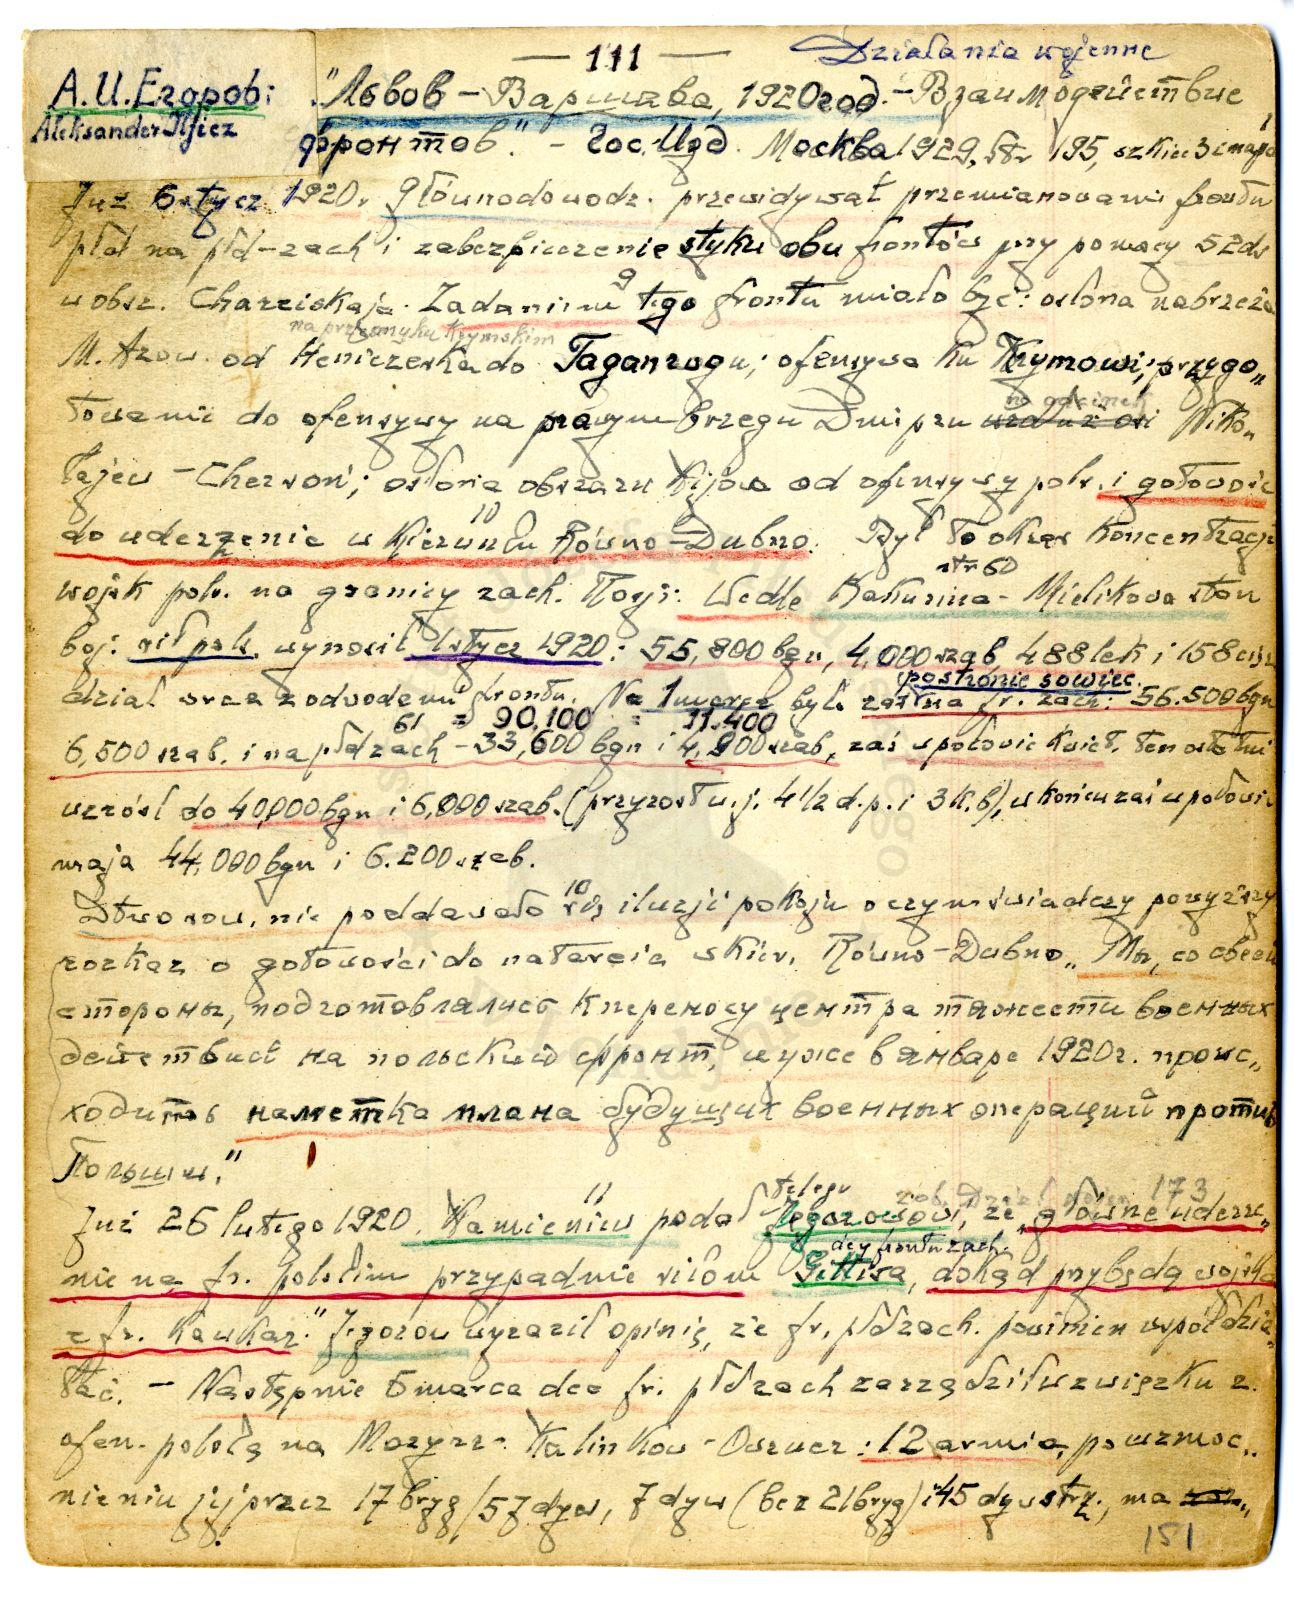 — 111 — Działania wojenne
А. И. Егоров: "Львов – Варшава, 1920 год. – Взаимодействие
Aleksander Iljicz фронтов." – Гос. Изд. Москва 1929, str 195, szkice 3 1 mapa
Już 6 stycz 1920. głównodowodz. przewidywał przemianowanie frontu
płd na płd-zach i zabezpieczenie styku obu frontów przy pomocy 52 ds
w obsz. Charciskaja. Zadaniem 9 tego frontu miało być: osłona nabrzeża
na przesmyku Krymskim
M. Azow. od Heniczeska do Taganrogu; ofensywa ku Krymowi; przygo„
na odcinek
towanie do ofensywy na prawym brzegu Dniepru wzdłuż osi Niko„
łajew – Chersoń; osłona obszaru Kijowa od ofensywy pols. i gotowość
do uderzenia w kierunku 10 Równo – Dubno. Był to okres koncentracji
str 60
wojsk pols. na granicy zach. Rosji. Wedle Kakurina – Mielikowa stan
boj. sił pols. wynosił 1 stycz 1920: 55,800 bgn, 4,000 szab, 488 lek i 158 cięż
po stronie sowiec.
dział wraz z odwodem frontu. Na 1 marca był. zaś na fr. zach: 56.500 bgn
61 = 90,100 = 11.400
6,500 szab. i na płdzach – 33,600 bgn i 4,900 szab, zaś w połowie kwiet. ten ostatni
wzrósł do 40,000 bgn i 6,000 szab. (przyrost w.j. 4 1/2 d.p. i 3 k.b), w końcu zaś w połowie
maja 44,000 bgn i 6.200 szab.
D-two sow. nie poddawało 10 się iluzji pokoju o czym świadczy powyższy
rozkaz o gotowości do natarcia w kier. Równo – Dubno „Мы, со своей
стороны, подготовлялись к переносу центра тяжести военных
действий на польский фронт, и уже в январе 1920 г. проис„
ходит наметка плана будущих военных операций против
Польши."
telegr zob. Dział. wojen 173
Już 26 lutego 1920. Kamieniew 11 podał Jegorowowi, że „główne uderze„
dcy frontu zach.
nie na fr. polskim przypadnie siłom Gittisa, dokąd przybędą wojska
z fr. Kaukaz." Jegorow wyraził opinię, że fr. płdzach. powinien współdzia„
łać. – Następnie 5 marca dca fr. płdzach zarządził w związku z
ofen. polską na Mozyrz – Kalinkow – Owrucz: 12 armia, po wzmoc„
nieniu jej przez 17 bryg/57 dyw, 7 dyw (bez 21 bryg) i 45 dyw strz., ma
151